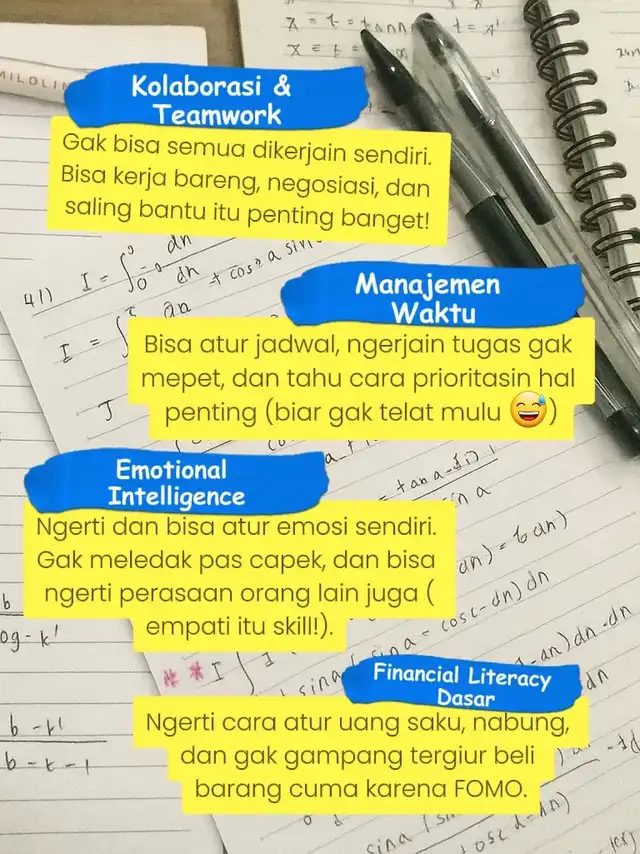 MILOLIN
Kolaborasi &
Teamwork
Gak bisa semua dikerjain sendiri.
Bisa kerja bareng, negosiasi, dan
saling bantu itu penting banget!
41) I =
Manajemen
Waktu
Bisa atur jadwal, ngerjain tugas gak
mepet, dan tahu cara prioritasin hal
penting (biar gak telat mulu 😅)
I =
J
Emotional
Intelligence
Ngerti dan bisa atur emosi sendiri.
Gak meledak pas capek, dan bisa
ngerti perasaan orang lain juga (
empati itu skill!).
** I
Financial Literacy
Dasar
Ngerti cara atur uang saku, nabung,
dan gak gampang tergiur beli
barang cuma karena FOMO.